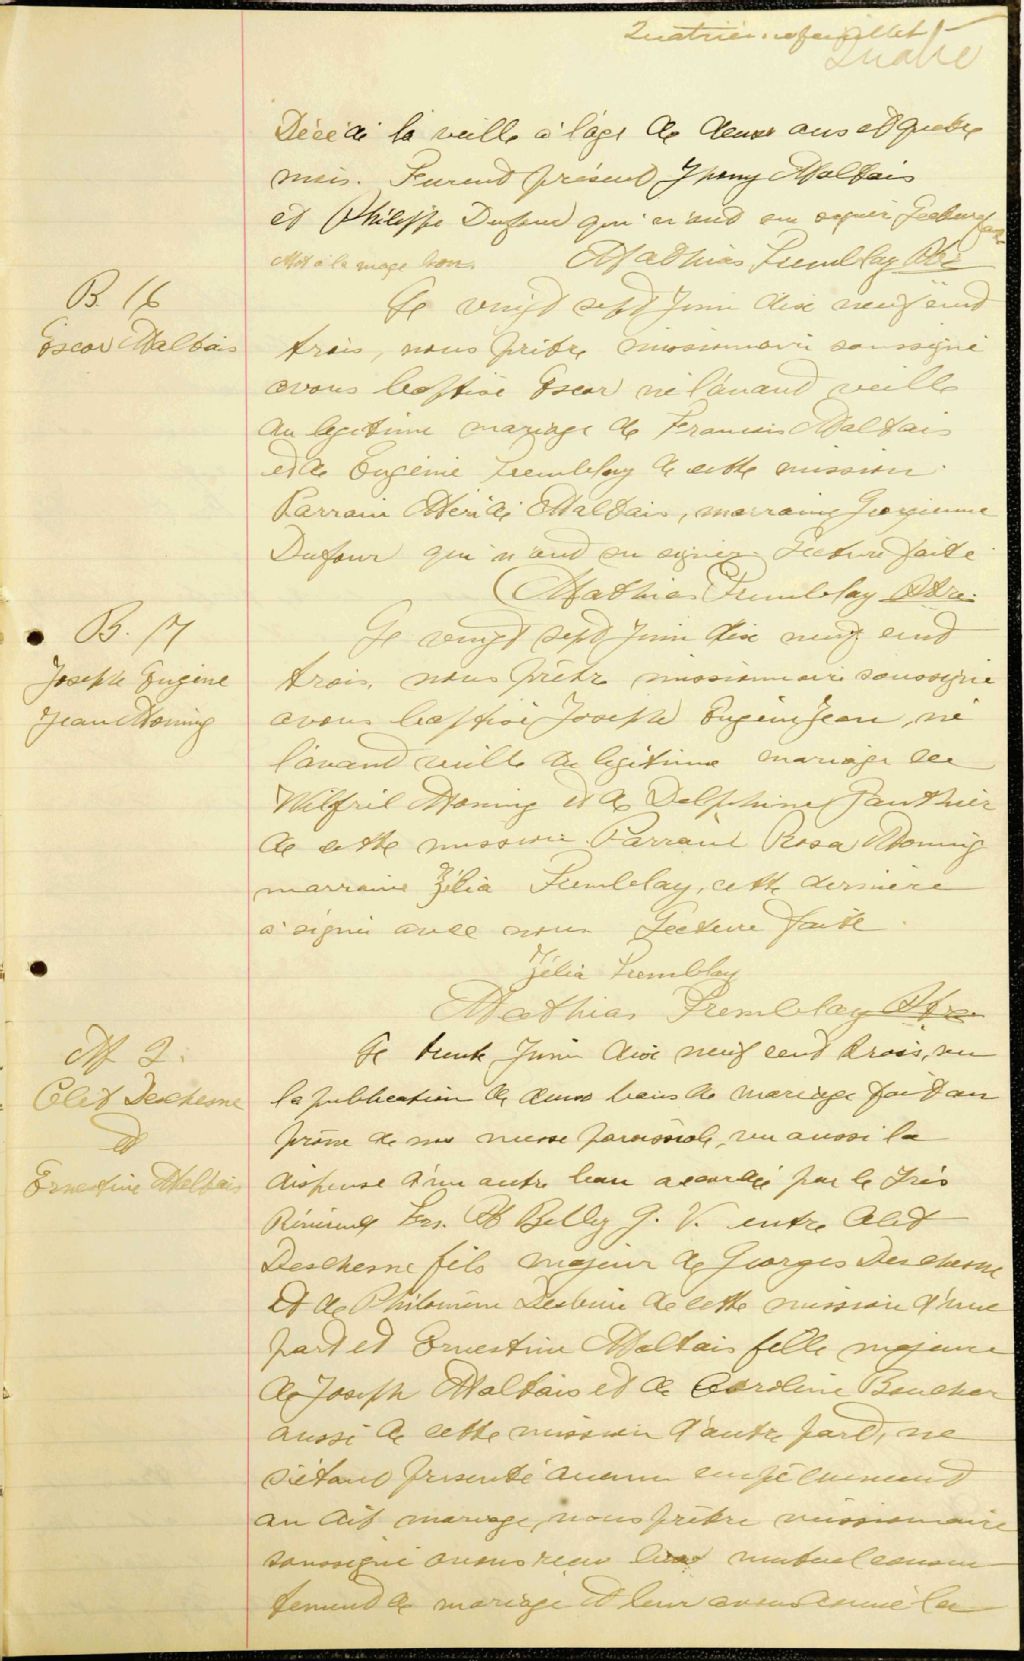 Quatrième feuillet
Quatre
Décédé la veille à l'âge de deux ans et quatre
mois. Furent présent Maltais
et Philippe Dufour qui n'ont su signer Lecture faite
Mot à la marge bon. Mathias Tremblay Ptre
B 16
Oscar Maltais
Le vingt sept Juin dix neuf cent
trois, nous prêtre missionnaire soussigné
avons baptisé Oscar né l'avant veille
du légitime mariage de Francois Maltais
et de Eugénie Tremblay de cette mission.
Parrain Méridé Maltais, marraine Georgienne
Dufour qui n'ont su signer Lecture faite.
Mathias Tremblay Ptre.
B. 17
Joseph Eugène
Jean Morning
Le vingt sept Juin dix neuf cent
trois, nous prêtre missionnaire soussigné
avons baptisé Joseph Eugène Jean, né
l'avant veille du légitime mariage de
Wilfril Morning et de Delphine Gauthier
de cette mission. Parrain Rosa Morning
marraine Zélia Tremblay, cette dernière
a signé avec nous Lecture faite.
Zélia Tremblay
Mathias Tremblay Ptre
M 2.
Clet Deschesne
et
Ernestine Maltais
Le trente Juin dix neuf cent trois, vu
la publication de deux bans de mariage fait au
prône de nos messe paroissiale, vu aussi la
dispense d'un autre ban accordée par le Très
Révérend Frs. X Belley G. V. entre Clet
Deschesne fils majeur de Georges Deschesne
et de Philomène de cette mission d'une
part et Ernestine Maltais fille majeure
de Joseph Maltais et de Caroline Boucher
aussi de cette mission d'autre part, ne
s'étant présenté aucun empêchement
au dit mariage, nous prêtre missionnaire
soussigné avons reçu leur mutuel consen
tement de mariage et leur avons donné la